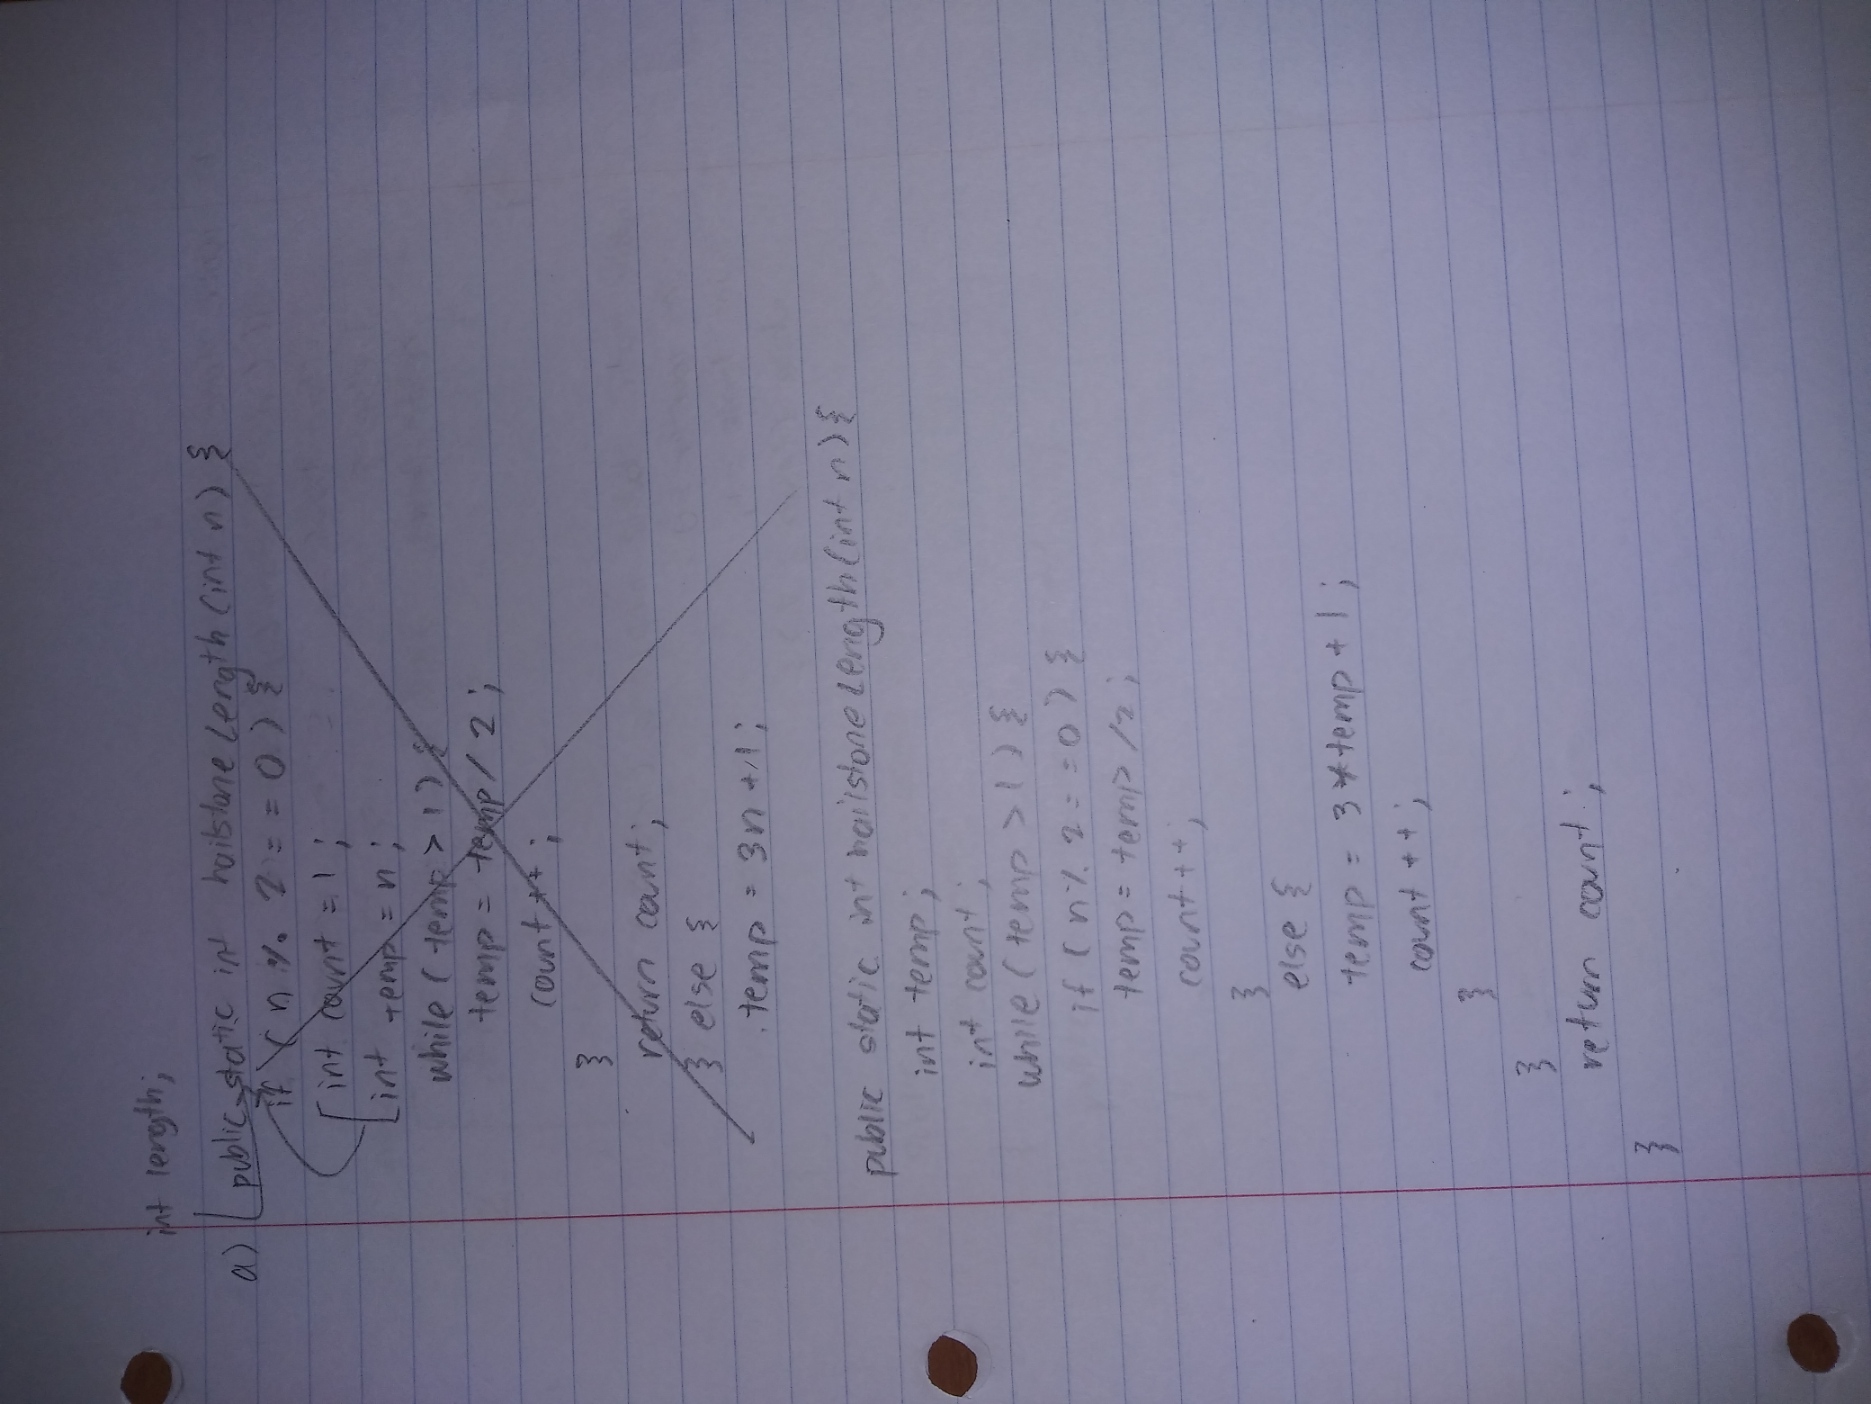 int length;
a) public static int hailstone Length (int n) {
if (n % 2 == 0) {
int count = 1;
int temp = n;
while (temp > 1) {
temp = temp / 2;
count ++;
}
return count;
} else {
temp = 3n + 1;
public static int hailstone Length (int n) {
int temp;
int count;
while (temp > 1) {
if (n % 2 == 0) {
temp = temp / 2;
count ++;
}
else {
temp = 3 * temp + 1;
count ++;
}
}
return count;
}